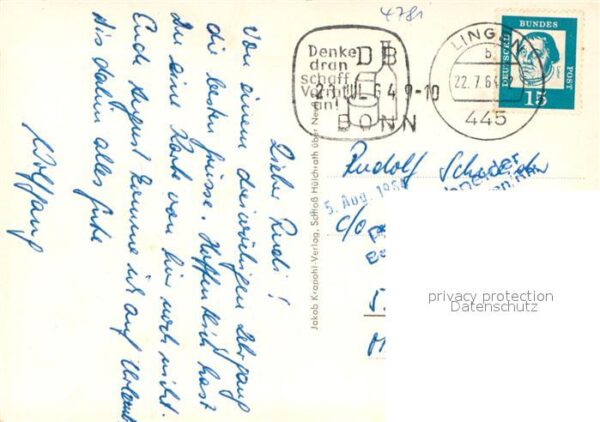 4781
Denke
dran
schaff
Vorrat
an!
DB
23. JUL. 64 9-10
BONN
LINGEN
22.7.64
445
DEUTSCHE
BUNDES
POST
15
Lieber Rudi!
Von einem dreiwöchigen Lehrgang
die besten Grüsse. Hoffentlich hast
Du eine Karte von hier noch nicht.
Ende August komme ich auf Urlaub
Bis dahin alles Gute
Wolfgang
Jakob Krapohl-Verlag, Schloß Hülchrath über
Rudolf Schneider
5. Aug. 1964
c/o
privacy protection
Datenschutz